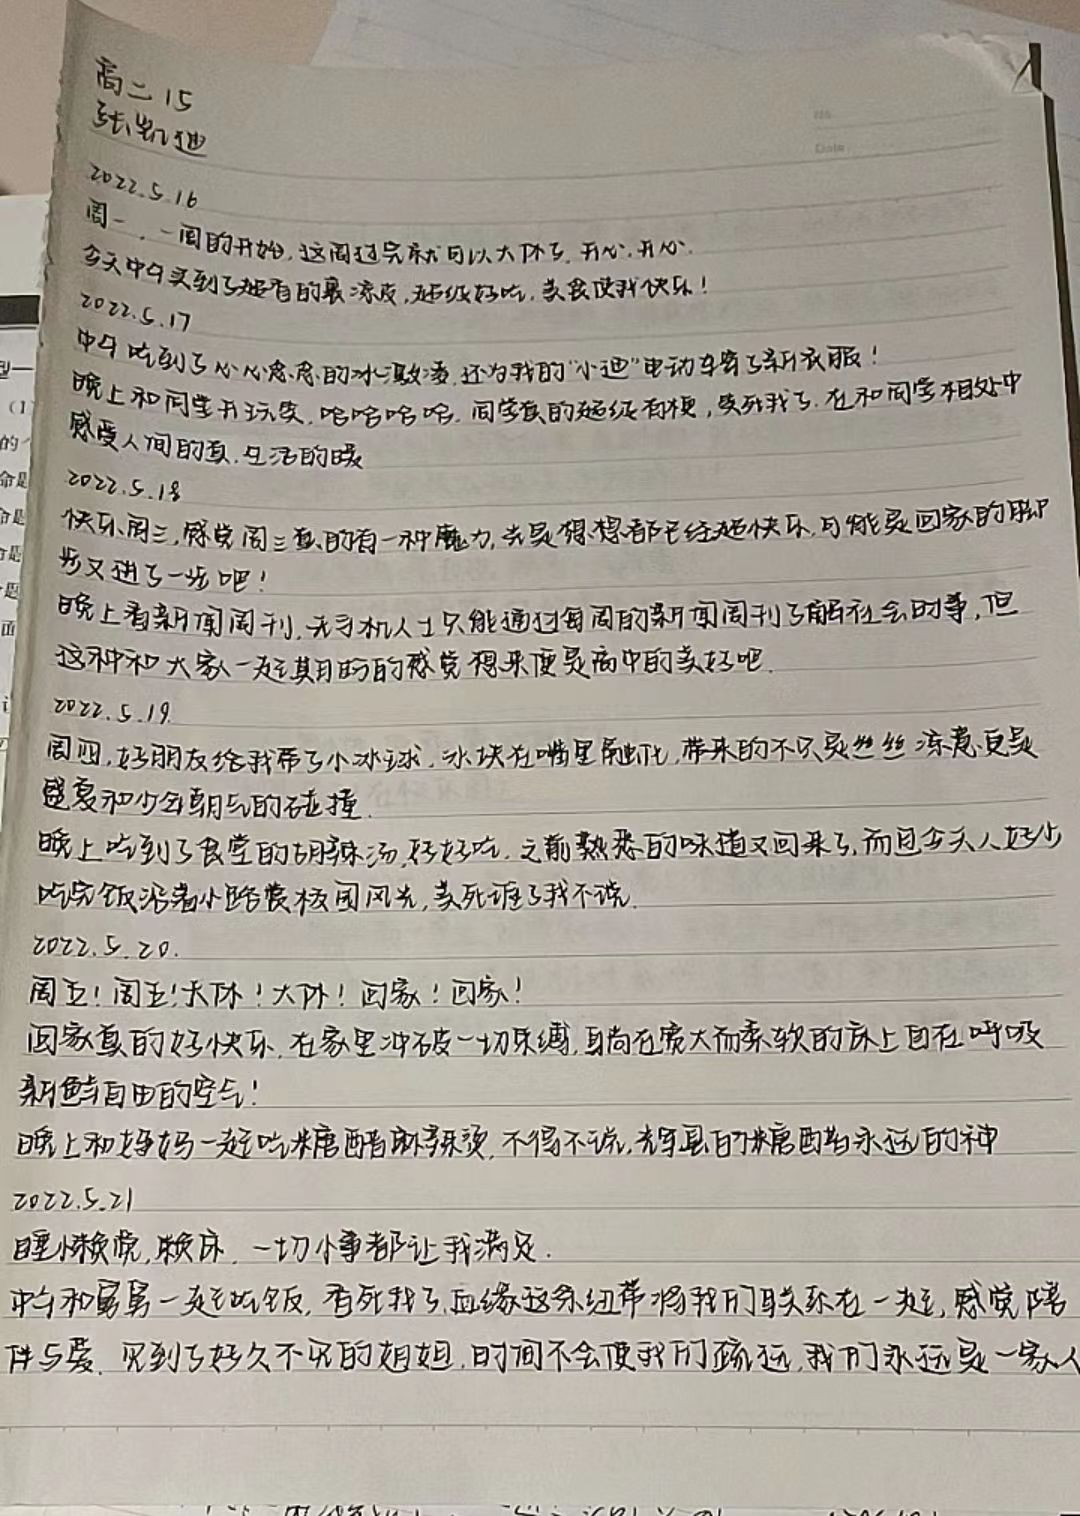 高二 15
张凯迪
No.
Date
2022.5.16
周一，一周的开始，这周过完就可以大休了，开心，开心.
今天中午买到了超香的裹凉皮，超级好吃，美食使我快乐！
2022.5.17
中午吃到了心心念念的冰激凌，还为我的“小迪”电动车穿了新衣服！
晚上和同学开玩笑，哈哈哈哈，同学真的超级有梗，笑死我了，在和同学相处中
感受人间的真，生活的暖
2022.5.18
快乐周三，感觉周三真的有一种魔力，光是想想都已经超快乐，可能是回家的脚
步又进了一步吧！
晚上看新闻周刊，无手机人士只能通过每周的新闻周刊了解社会时事，但
这种和大家一起期盼的感觉想来便是高中的美好吧.
2022.5.19.
周四，好朋友给我带了小冰球，冰块在嘴里融化，带来的不只是丝丝凉意更是
盛夏和少年朝气的碰撞.
晚上吃到了食堂的胡辣汤，好好吃，之前熟悉的味道又回来了，而且今天人好少
吃完饭沿着小路赏校园风光，美死谁了我不说.
2022.5.20.
周五！周五！大休！大休！回家！回家！
回家真的好快乐，在家里冲破一切束缚，身尚在宽大而柔软的床上自在呼吸
新鲜自由的空气！
晚上和妈妈一起吃糖醋麻辣烫，不得不说，辉县的糖醋永远的神
2022.5.21
睡懒觉，赖床，一切小事都让我满足.
中午和舅舅一起吃饭，香死我了，血缘这条纽带将我们联系在一起，感觉陪
伴与爱. 见到了好久不见的姐姐，时间不会使我们疏远，我们永远是一家人